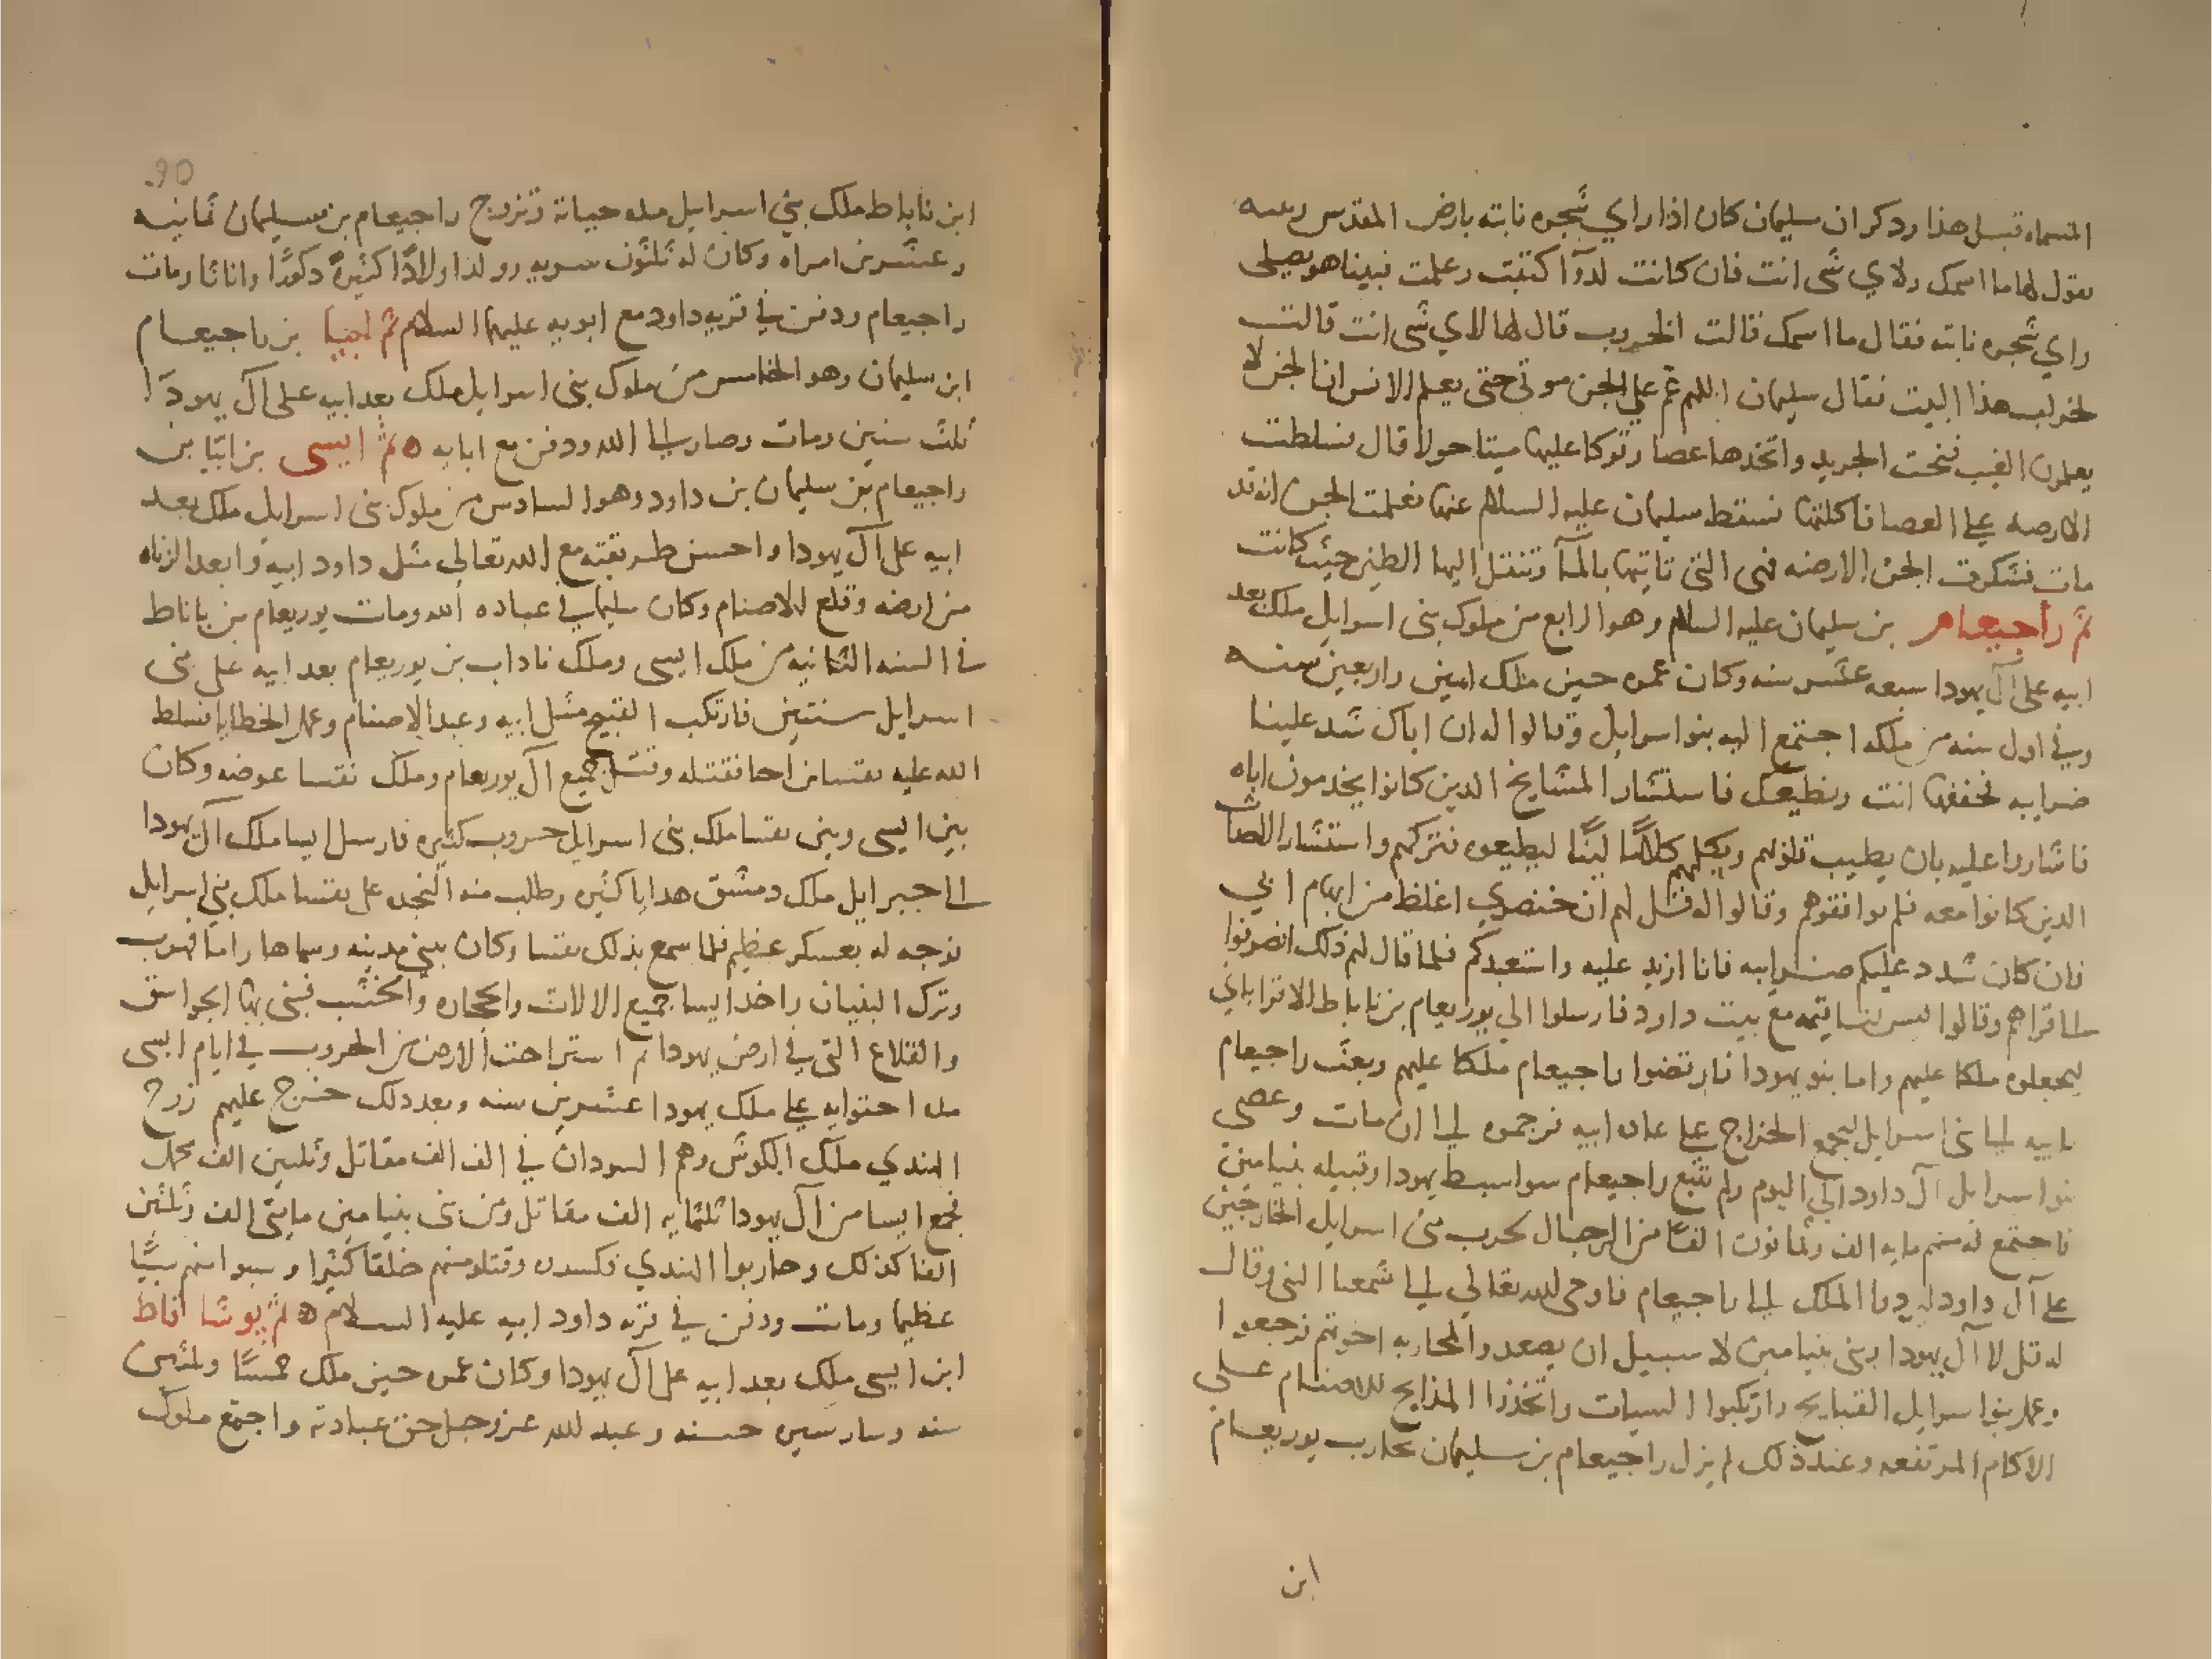 المسماه قبل هذا وذكر ان سليمان كان اذا راي شجره نابته بارض المقدس وغيره
يقول لها ما اسمك ولاي شي انت فان كانت لدوآ اكتبت وعلمت فبينا هو يصلى
راي شجره نابته فقال ما اسمك فقالت الخروب قال لها لاي شي انت قالت
لخراب هذا البيت فقال سليمان اللهم غم على الجن موتي حتى يعلم الانس ان الجن لا
يعلمون الغيب فنحت الجريد واتخذها عصا وتوكا عليها ميتا حولا قال فسلطت
الارضه على العصا فاكلتها فسقط سليمان عليه السلام عنها فعلمت الجن انه قد
مات فشكرت الجن الارضه فهى التى تاتيها بالمآ وتنقل اليها الطين حيث كانت
ثم راجيعام بن سليمان عليه السلام وهو الرابع من ملوك بنى اسرايل ملك بعد
ابيه على آل يهودا سبعه عشر سنه وكان عمره حين ملك اثنين واربعين سنه
وفي اول سنه من ملكه اجتمع اليه بنو اسرايل وقالوا له ان اباك شدد علينا
ضرايبه فخففها انت ونطيعك فاستشار المشايخ الذين كانوا يخدمون اباه
فاشاروا عليه بان يطيب قلوبهم ويكلمهم كلاما لينا ليطيعوه فتركهم واستشار
الذين كانوا معه فلم يوافقوهم وقالوا له قل لهم ان خنصري اغلظ من ابهام ابي
فان كان شدد عليكم ضرايبه فانا ازيد عليه واستعبدكم فلما قال لهم ذلك انصرفوا
الى قراهم وقالوا ليس لنا مع بيت داود فارسلوا الي يوربعام بن ناباط الافراباتي
ليجعلوه ملكا عليهم واما بنو يهودا فارتضوا راجيعام ملكا عليهم وبعث راجيعام
الى بنى اسرايل ليجمع الخراج على عاده ابيه فرجموه الى ان مات وعصى
بنو اسرايل آل داود الي اليوم ولم يتبع راجيعام سوا سبط يهودا وقبيله بنيامين
فاجتمع له منهم مايه الف وثمانون الفا من الرجال لحرب بنى اسرايل الخارجين
على آل داود ليردا الملك الى راجيعام فاوحى الله تعالي الى شمعيا النبي وقال
له قل لا آل يهودا وبنى بنيامين لا سبيل ان يصعدوا لمحاربه اخوتهم فرجعوا
وعمل بنو اسرايل القبايح وارتكبوا السيات واتخذوا المذابح للاصنام على
الاكام المرتفعه وعند ذلك لم يزل راجيعام بن سليمان يحارب يوربعام
ابن
90.
ابن ناباط ملك بني اسرايل مده حياته وتزوج راجيعام بن سليمان ثمانيه
وعشرين امراه وكان له ثلثون سريه وولد اولادا كثيرة ذكورا واناثا ومات
راجيعام ودفن في قريه داود مع ابويه عليهما السلام ثم ابيا بن راجيعام
ابن سليمان وهو الخامس من ملوك بنى اسرايل ملك بعد ابيه على آل يهودا
ثلث سنين ومات وصار الى الله ودفن مع ابايه ه ثم ايسى بن ابيا بن
راجيعام بن سليمان بن داود وهو السادس من ملوك بنى اسرايل ملك بعد
ابيه على آل يهودا واحسن طريقته مع الله تعالى مثل داود ابيه وابعد الزناه
من ارضه وقلع الاصنام وكان سليما في عباده الله ومات يوربعام بن ناباط
في السنه الثانيه من ملك ايسى وملك ناداب بن يوربعام بعد ابيه على بنى
اسرايل سنتين فارتكب القبيح مثل ابيه وعبد الاصنام وعمل الخطايا فسلط
الله عليه بعتسا بن احيا فقتله وقتل جميع آل يوربعام وملك بعتسا عوضه وكان
بين ايسى وبنى بعتسا ملك بنى اسرايل حروب كثيره فارسل ايسا ملك آل يهودا
الى جبرايل ملك دمشق هدايا كثيره وطلب منه النجده على بعتسا ملك بني اسرايل
فوجه له بعسكر عظيم فلما سمع بذلك بعتسا وكان يبني مدينه وسماها راما فهرب
وترك البنيان واخذ ايسا جميع الالات والحجاره والخشب فبنى بها الجواسق
والقلاع التى في ارض يهودا ثم استراحت الارض من الحروب في ايام ايسى
مده احتوايه على ملك يهودا عشرين سنه وبعد ذلك خرج عليهم زرح
الهندي ملك الكوش وهم السودان في الف الف مقاتل وثلثين الف محمل
فجمع ايسا من آل يهودا ثلثمايه الف مقاتل ومن بنى بنيامين مايتى الف وثلثين
الفا كذلك وحاربوا الهندي فكسره وقتلو منهم خلقا كثيرا وسبوا منهم سبيا
عظيما ومات ودفن في قريه داود ابيه عليه السلام ه ثم يوشا افاط
ابن ايسى ملك بعد ابيه على آل يهودا وكان عمره حين ملك خمسا وثلثين
سنه وسار سيره حسنه وعبد الله عز وجل حق عبادته واجتمع ملوك